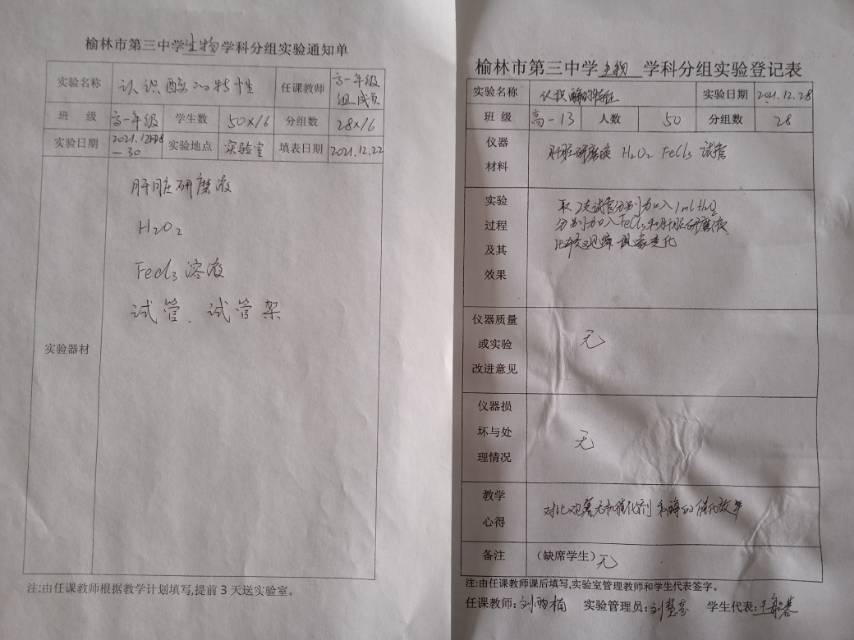 榆林市第三中学生物学科分组实验通知单
实验名称 认识酶的特性 任课教师 高一年级组成员
班 级 高一年级 学生数 50×16 分组数 28×16
实验日期 2021.12.28—30 实验地点 实验室 填表日期 2021.12.22
实验器材
肝脏研磨液
H2O2
FeCl3溶液
试管、试管架
注:由任课教师根据教学计划填写,提前3天送实验室。
榆林市第三中学生物 学科分组实验登记表
实验名称 认识酶的特性 实验日期 2021.12.28
班 级 高一13 人数 50 分组数 28
仪器材料 肝脏研磨液 H2O2 FeCl3 试管
实验过程及其效果
取2支试管分别加入1ml H2O2
分别加入FeCl3和肝脏研磨液
观察现象变化
仪器质量或实验改进意见 无
仪器损坏与处理情况 无
教学心得 对比观察无机催化剂和酶的催化效率
备注 (缺席学生) 无
注:由任课教师课后填写,实验室管理教师和学生代表签字。
任课教师: 实验管理员: 学生代表: